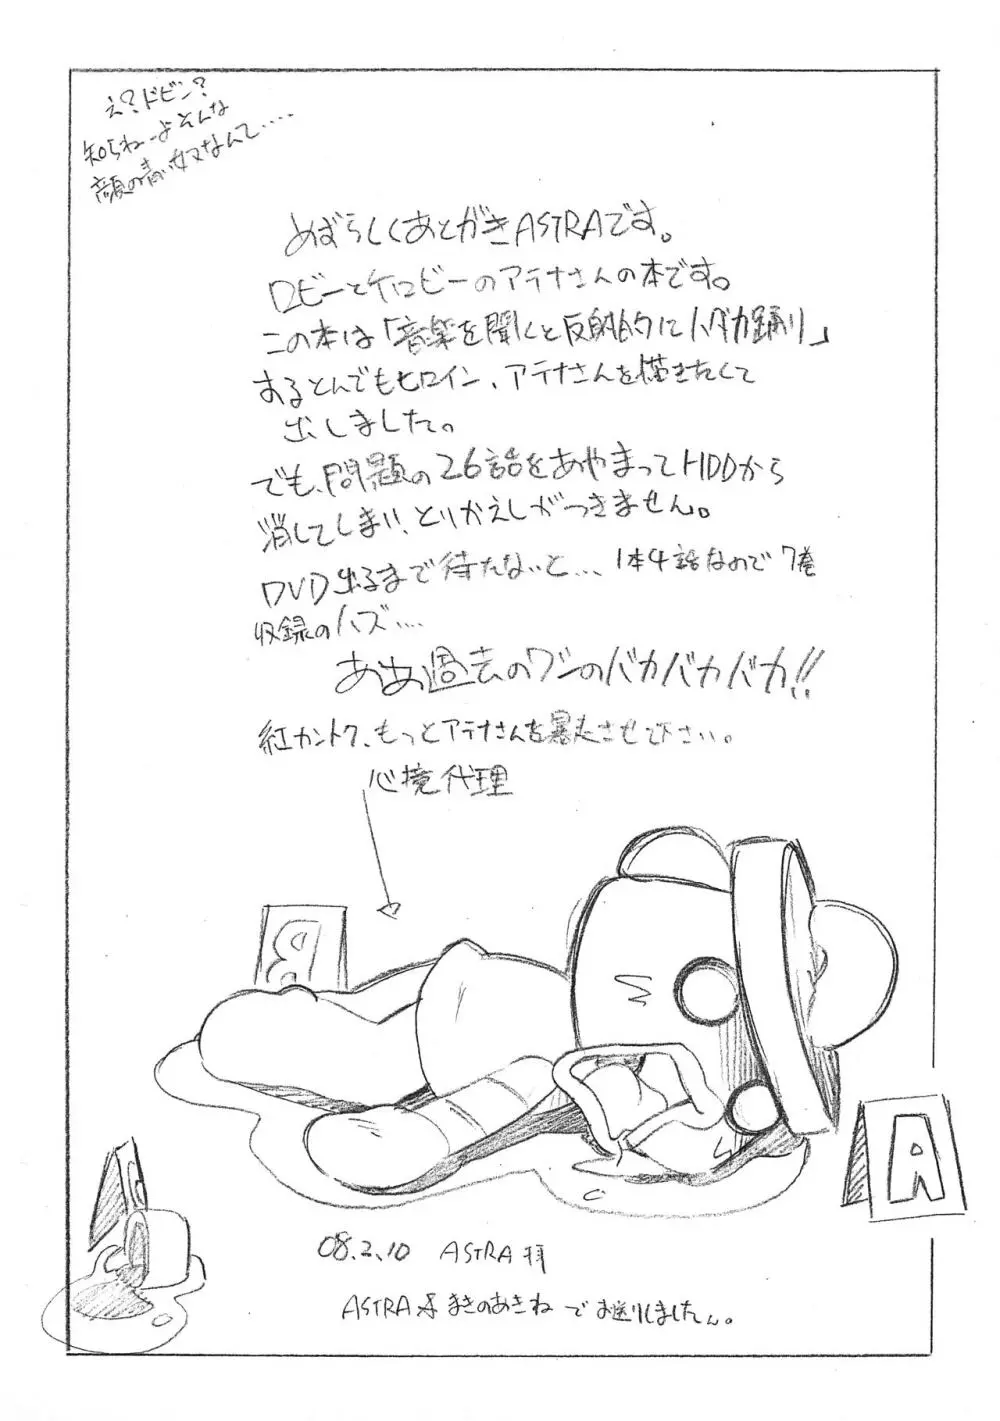 え?ドビン?
知らねーよそんな
顔の青い奴なんて....
めずらしくあとがきASTRAです。
ロビーとケロビーのアテナさんの本です。
この本は「音楽を聞くと反射的にハダカ踊り」
するとんでもヒロイン、アテナさんを描きたくて
出しました。
でも、問題の26話をあやまってHDDから
消してしまい、とりかえしがつきません。
DVD出るまで待たないと... 1本4話なので7巻
収録のハズ....
ああ過去のワシのバカバカバカ!!
紅カントク、もっとアテナさんを暴走させて下さい。
心境代理
B
A
08.2.10 ASTRA拝
ASTRA まきのあきね でお送りしましたん。